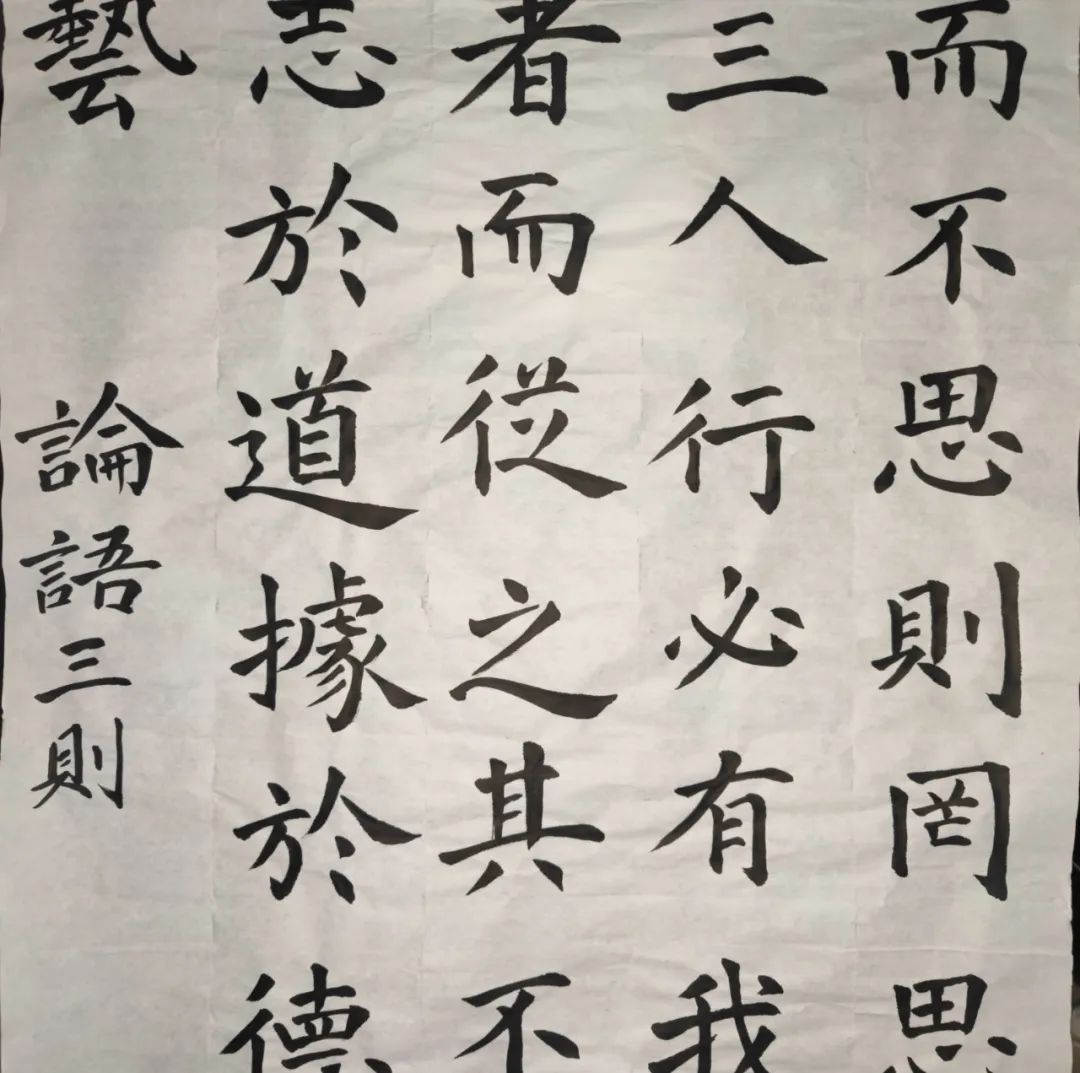 而不思則罔思
三人行必有我
者而從之其不
志於道據於德
藝
論語三則